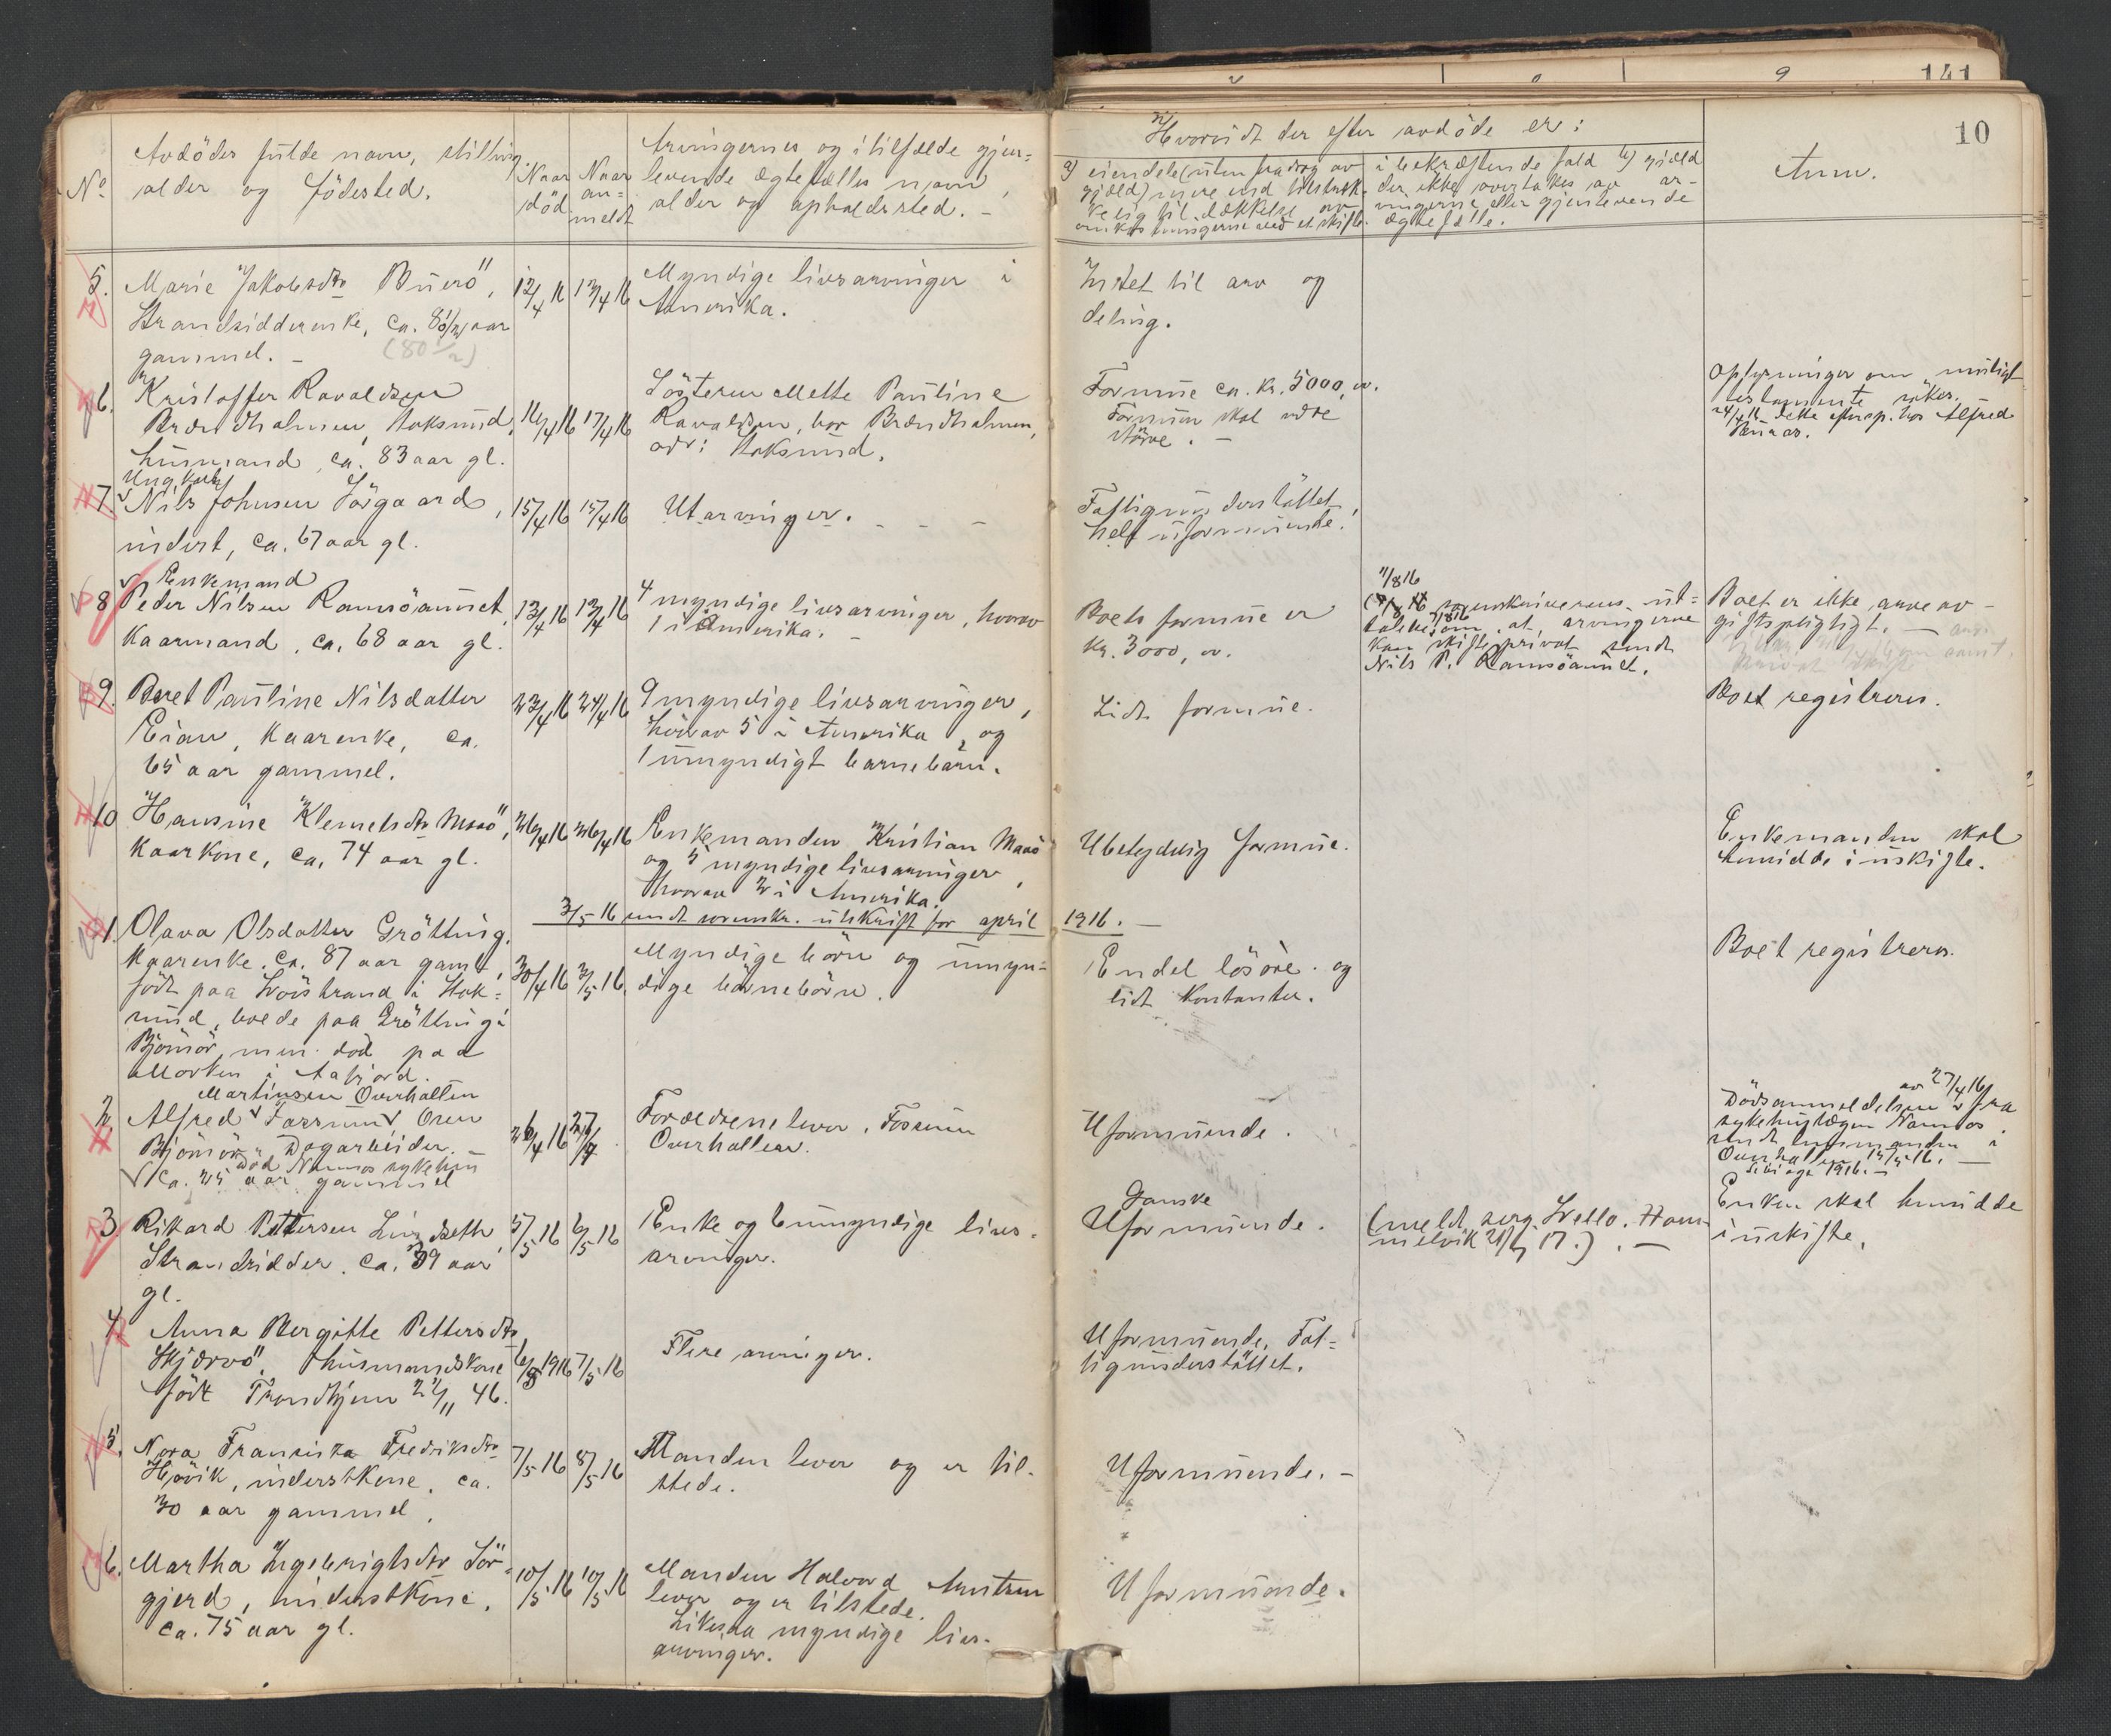 141
10
No
Avdödes fulde navn, stilling,
alder og födested.
Naar
död
Naar
an-
meldt
Arvingernes og i tilfælde gjen-
levende ægtefælles navn,
alder og opholdssted. -
Hvorvidt der efter avdöde er:
a) eiendele (uten fradrag av
gjæld) mere end tilstræk-
kelig til dækkelse av
omkostningerne ved et skifte.
i bekræftende fald b) gjæld
der ikke overtakes av ar-
vingerne eller gjenlevende
ægtefælle.
Anm.
5. Marie Jakobsdtr Buerö,
Strandsidderenke, ca. 80 1/2 aar
gammel. - (80 1/2)
12/4 16
13/4 16
Myndige livsarvinger i
Amerika.
Intet til arv og
deling.
6. Kristoffer Ravaldsen
Brændholmen, Stoksund,
husmand, ca. 83 aar gl.
16/4 16
17/4 16
Sösteren Mette Pauline
Ravaldsen, bor Brændholmen,
adr: Stoksund.
Formue ca. kr. 5000,00.
Formuen skal være
större. -
Oplysninger om muligt
testamente sökes.
24/4 16 dette eftersp. hos Alfred
7. Ungkarl
Nils Johnsen Sörgaard,
inderst, ca. 67 aar gl.
15/4 16
15/4 16
Utarvinger. - - -
Fattigunderstöttet,
helt uformuende.
8 Enkemand
Peder Nilsen Ramsöaunet,
Kaarmand, ca. 68 aar gl.
13/4 16
13/4 16
4 myndige livsarvinger, hvorav
1 i Amerika. -
Boets formue er
kr. 3000,00.
11/8 16
sorenskriverens ut-
talelse om at arvingerne
kan skifte privat sendt
Nils P. Ramsöaunet.
Boet er ikke arveav-
giftspligtigt. -
9. Beret Pauline Nilsdatter
Eian, Kaarenke, ca.
65 aar gammel.
23/4 16
24/4 16
9 myndige livsarvinger,
hvorav 5 i Amerika, og
1 umyndigt barnebarn.
Lidt formue.
Boet registreres.
10 Hansine Klemetsdtr Masö,
Kaarkone, ca. 74 aar gl.
26/4 16
26/4 16
Enkemanden Kristian Masö
og 5 myndige livsarvinger,
hvorav 2 i Amerika.
Ubetydelig formue.
Enkemanden skal
hensidde i uskifte.
3/5 16 sendt sorenskr. utskrift for april 1916. -
1. Olava Olsdatter Grötting,
Kaarenke, ca. 87 aar gaml.,
födt paa Revöistrand i Stok-
sund, boede paa Grötting i
Björnör, men död paa
Morken i Aafjord.
30/4 16
3/5 16.
Myndige börn og umyn-
dige börnebörn.
Endel lösöre og
lidt kontanter.
Boet registreres.
2. Martinsen Overhallen
Alfred Fossum Osen
Björnör, Dagarbeider.
Död Namsos sykehus
Ca. 25 aar gammel
26/4 16
27/4
Forældrene lever, Fossum
Overhallen.
Uformuende.
Dödsanmeldelsen av 27/4 16 fra
sykehuslægen Namsos
sendt lensmanden i
Overhallen 15/5 16. -
3. Rikard Pettersen Lingseth
Strandsidder, ca. 39 aar
gl.
5/5 16
6/5 16
Enke og 6 umyndige livs-
arvinger.
Ganske
Uformuende.
Enken skal hensidde
i uskifte.
4. Anna Bergitte Pettersdtr
Skjærvö, husmandskone
födt Trondhjem 22/11 46.
6/5 1916
7/5 16
Flere arvinger.
Uformuende. Fat-
tigunderstöttet.
5. Nora Fransiska Fredriksdtr
Hövik, inderstkone, ca.
30 aar gammel.
7/5 16
8/5 16
Manden lever og er til-
stede.
Uformuende. -
6. Martha Ingebrigtsdtr Sör-
gjerd, inderstkone,
ca. 75 aar gl.
10/5 16
10/5 16
Manden Halvord Arntsen
lever og er tilstede.
Likesaa myndige livs-
arvinger.
Uformuende.